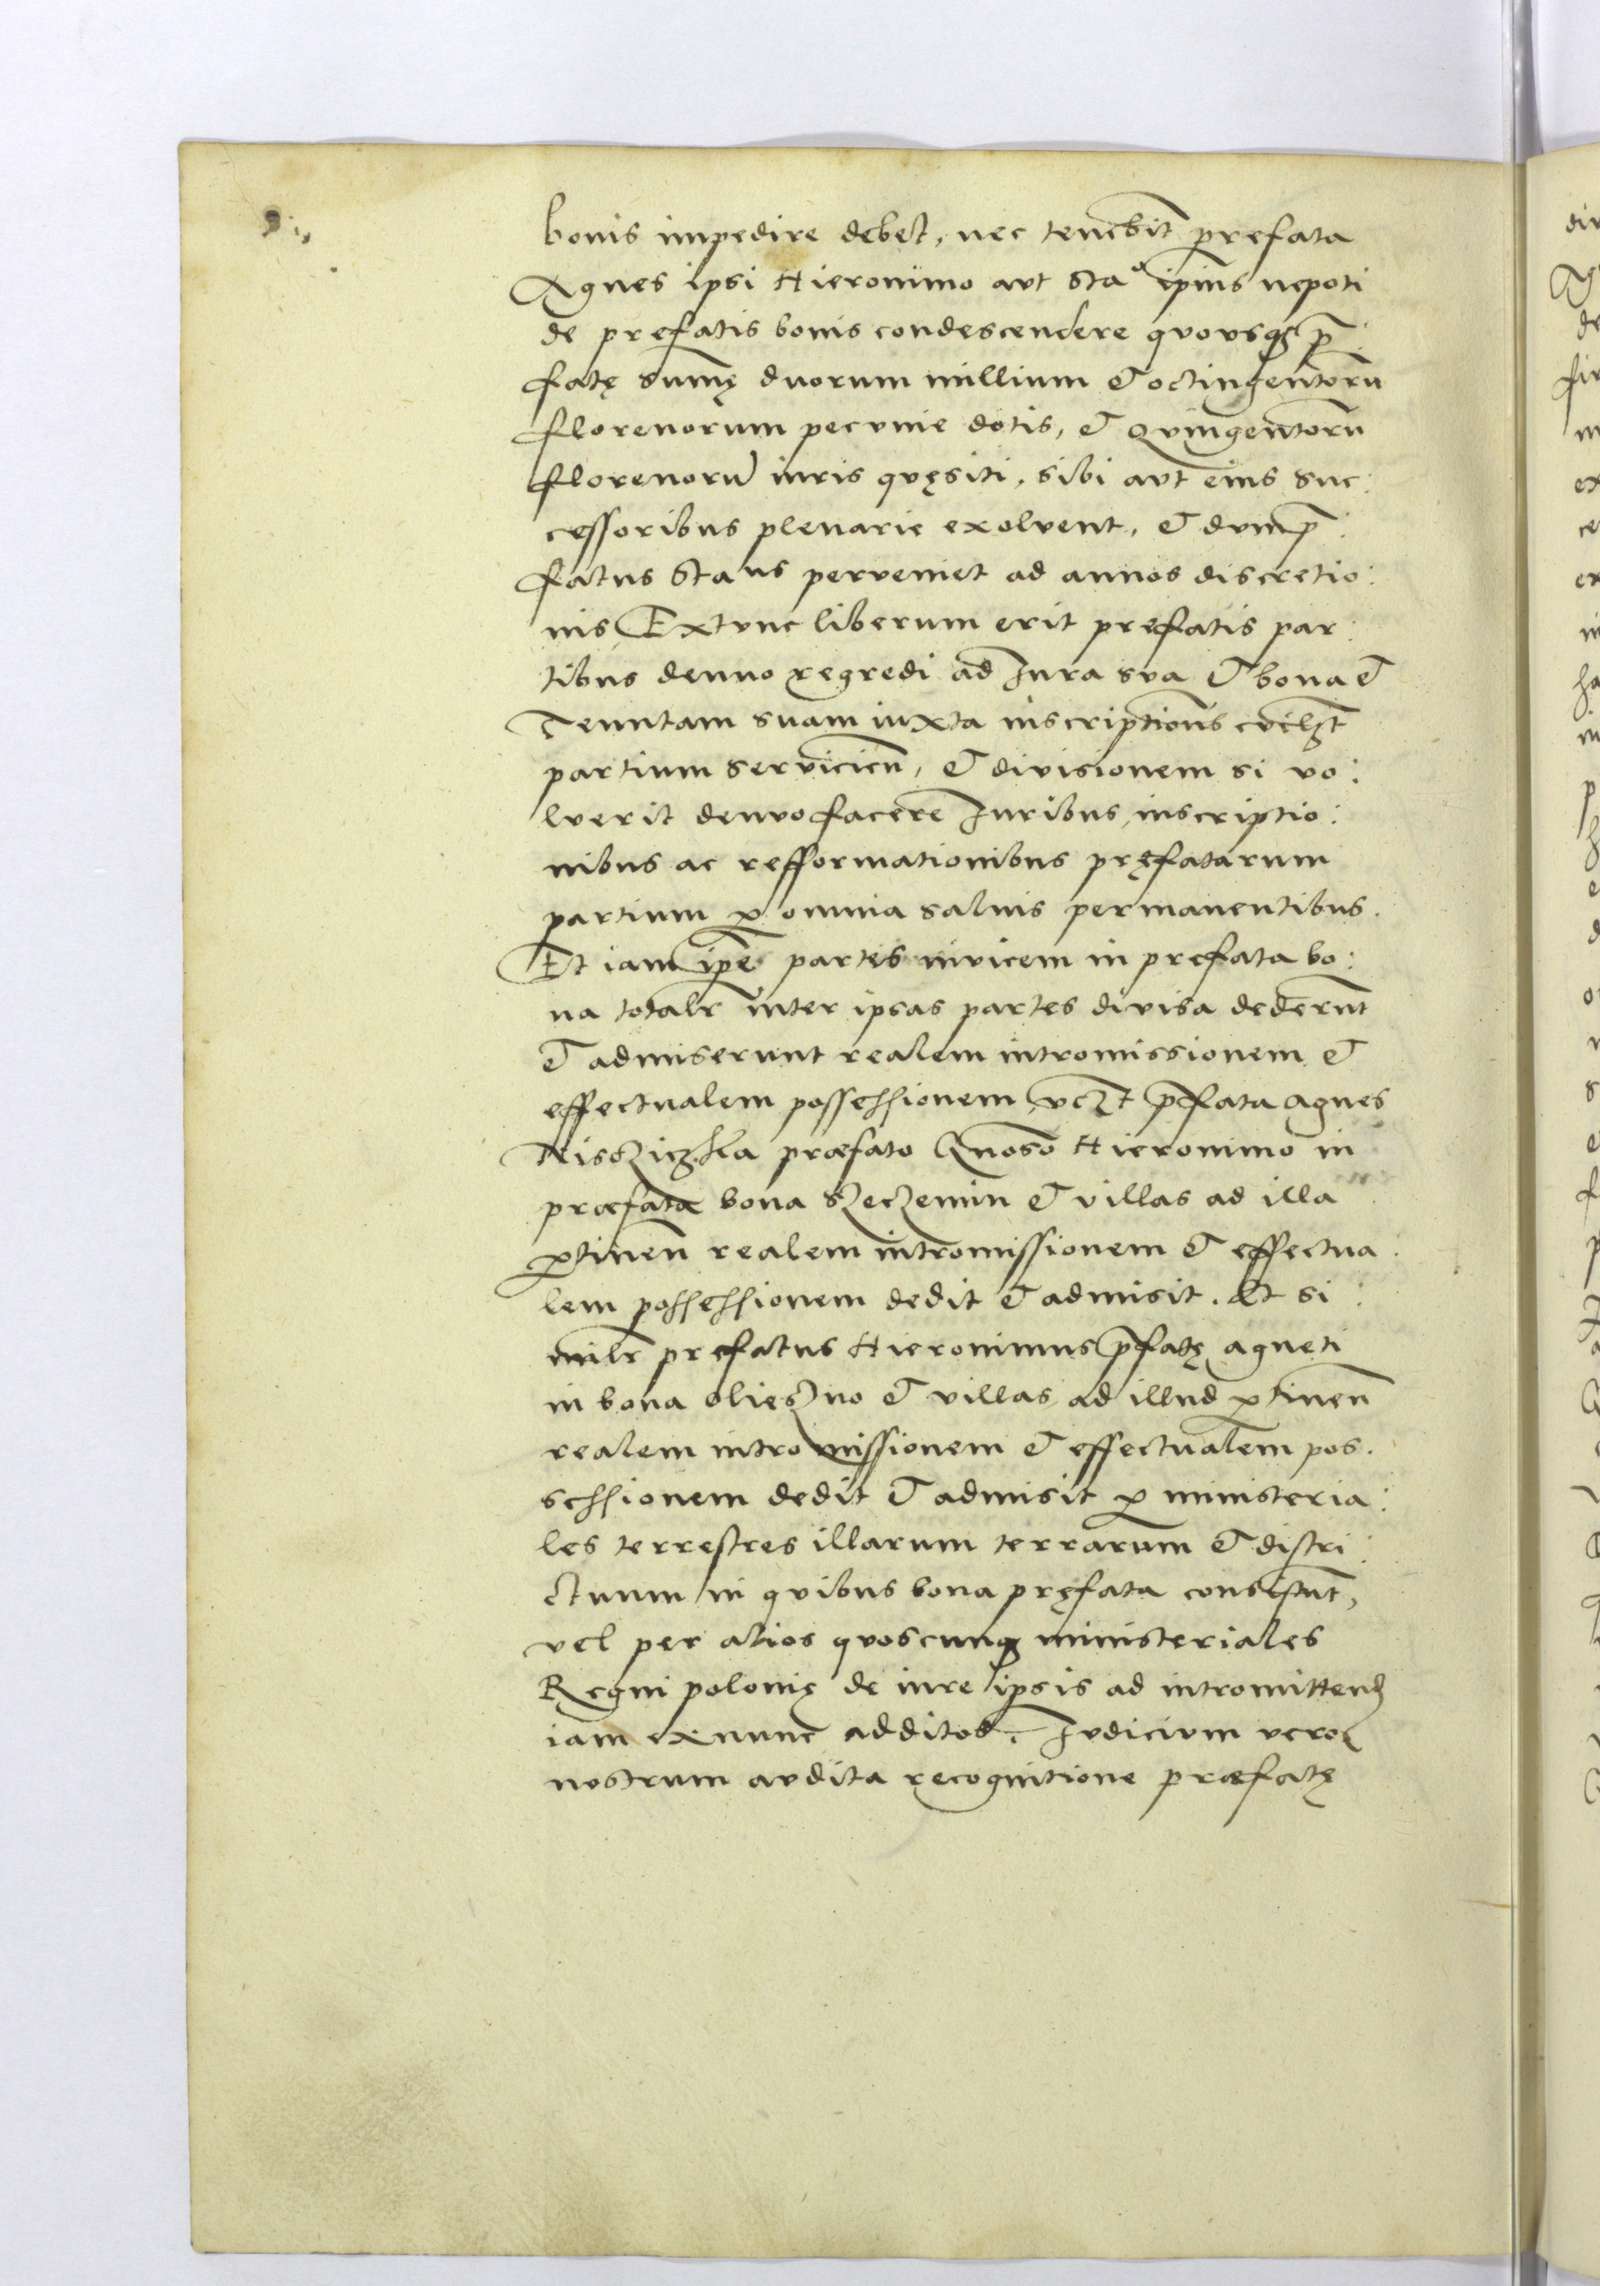 bonis impedire debet, nec tenebit prefata
Agnes ipsi Hieronimo aut Stao ipius nepoti
de prefatis bonis condescendere quousq pre:
fatę sumę duorum millium et octingentoru
florenorum pecunie dotis, et quingentoru
florenoru iuris quęsiti, sibi aut eius suc:
cessoribus plenarie exolvent, et dum pre:
fatus Staus perveniet ad annos discretio:
nis Extunc liberum erit prefatis par:
tibus denuo regredi ad Jura sua et bona et
Tenutam suam iuxta inscriptions
partium servicien, et divisionem si vo:
luerit denuo facere Juribus, inscriptio:
nibus ac refformationibus pręfatarum
partium p omnia salvis permanentibus.
Et iam ipe partes invicem in prefata bo:
na totalr inter ipsas partes divisa dederut
et admiserunt realem intromissionem et
effectualem possessionem, vczt pfata Agnes
præfato Gnoso Hieronimo in
præfata bona Szczemin et villas ad illa
ptinen realem intromissionem et effectua:
lem possessionem dedit et admisit. Et si:
milr prefatus Hieronimus pfatę Agneti
in bona Olieszno et villas ad illud ptinen
realem intromissionem et effectualem pos:
sessionem dedit et admisit p ministeria:
les terrestres illarum terrarum et distri:
ctuum in quibus bona pręfata consistut,
vel per alios quoscunq ministeriales
Regni polonię de iure ipsis ad intromittend
iam exnunc additos. Judicium vero
nostrum audita recognitione præfatę